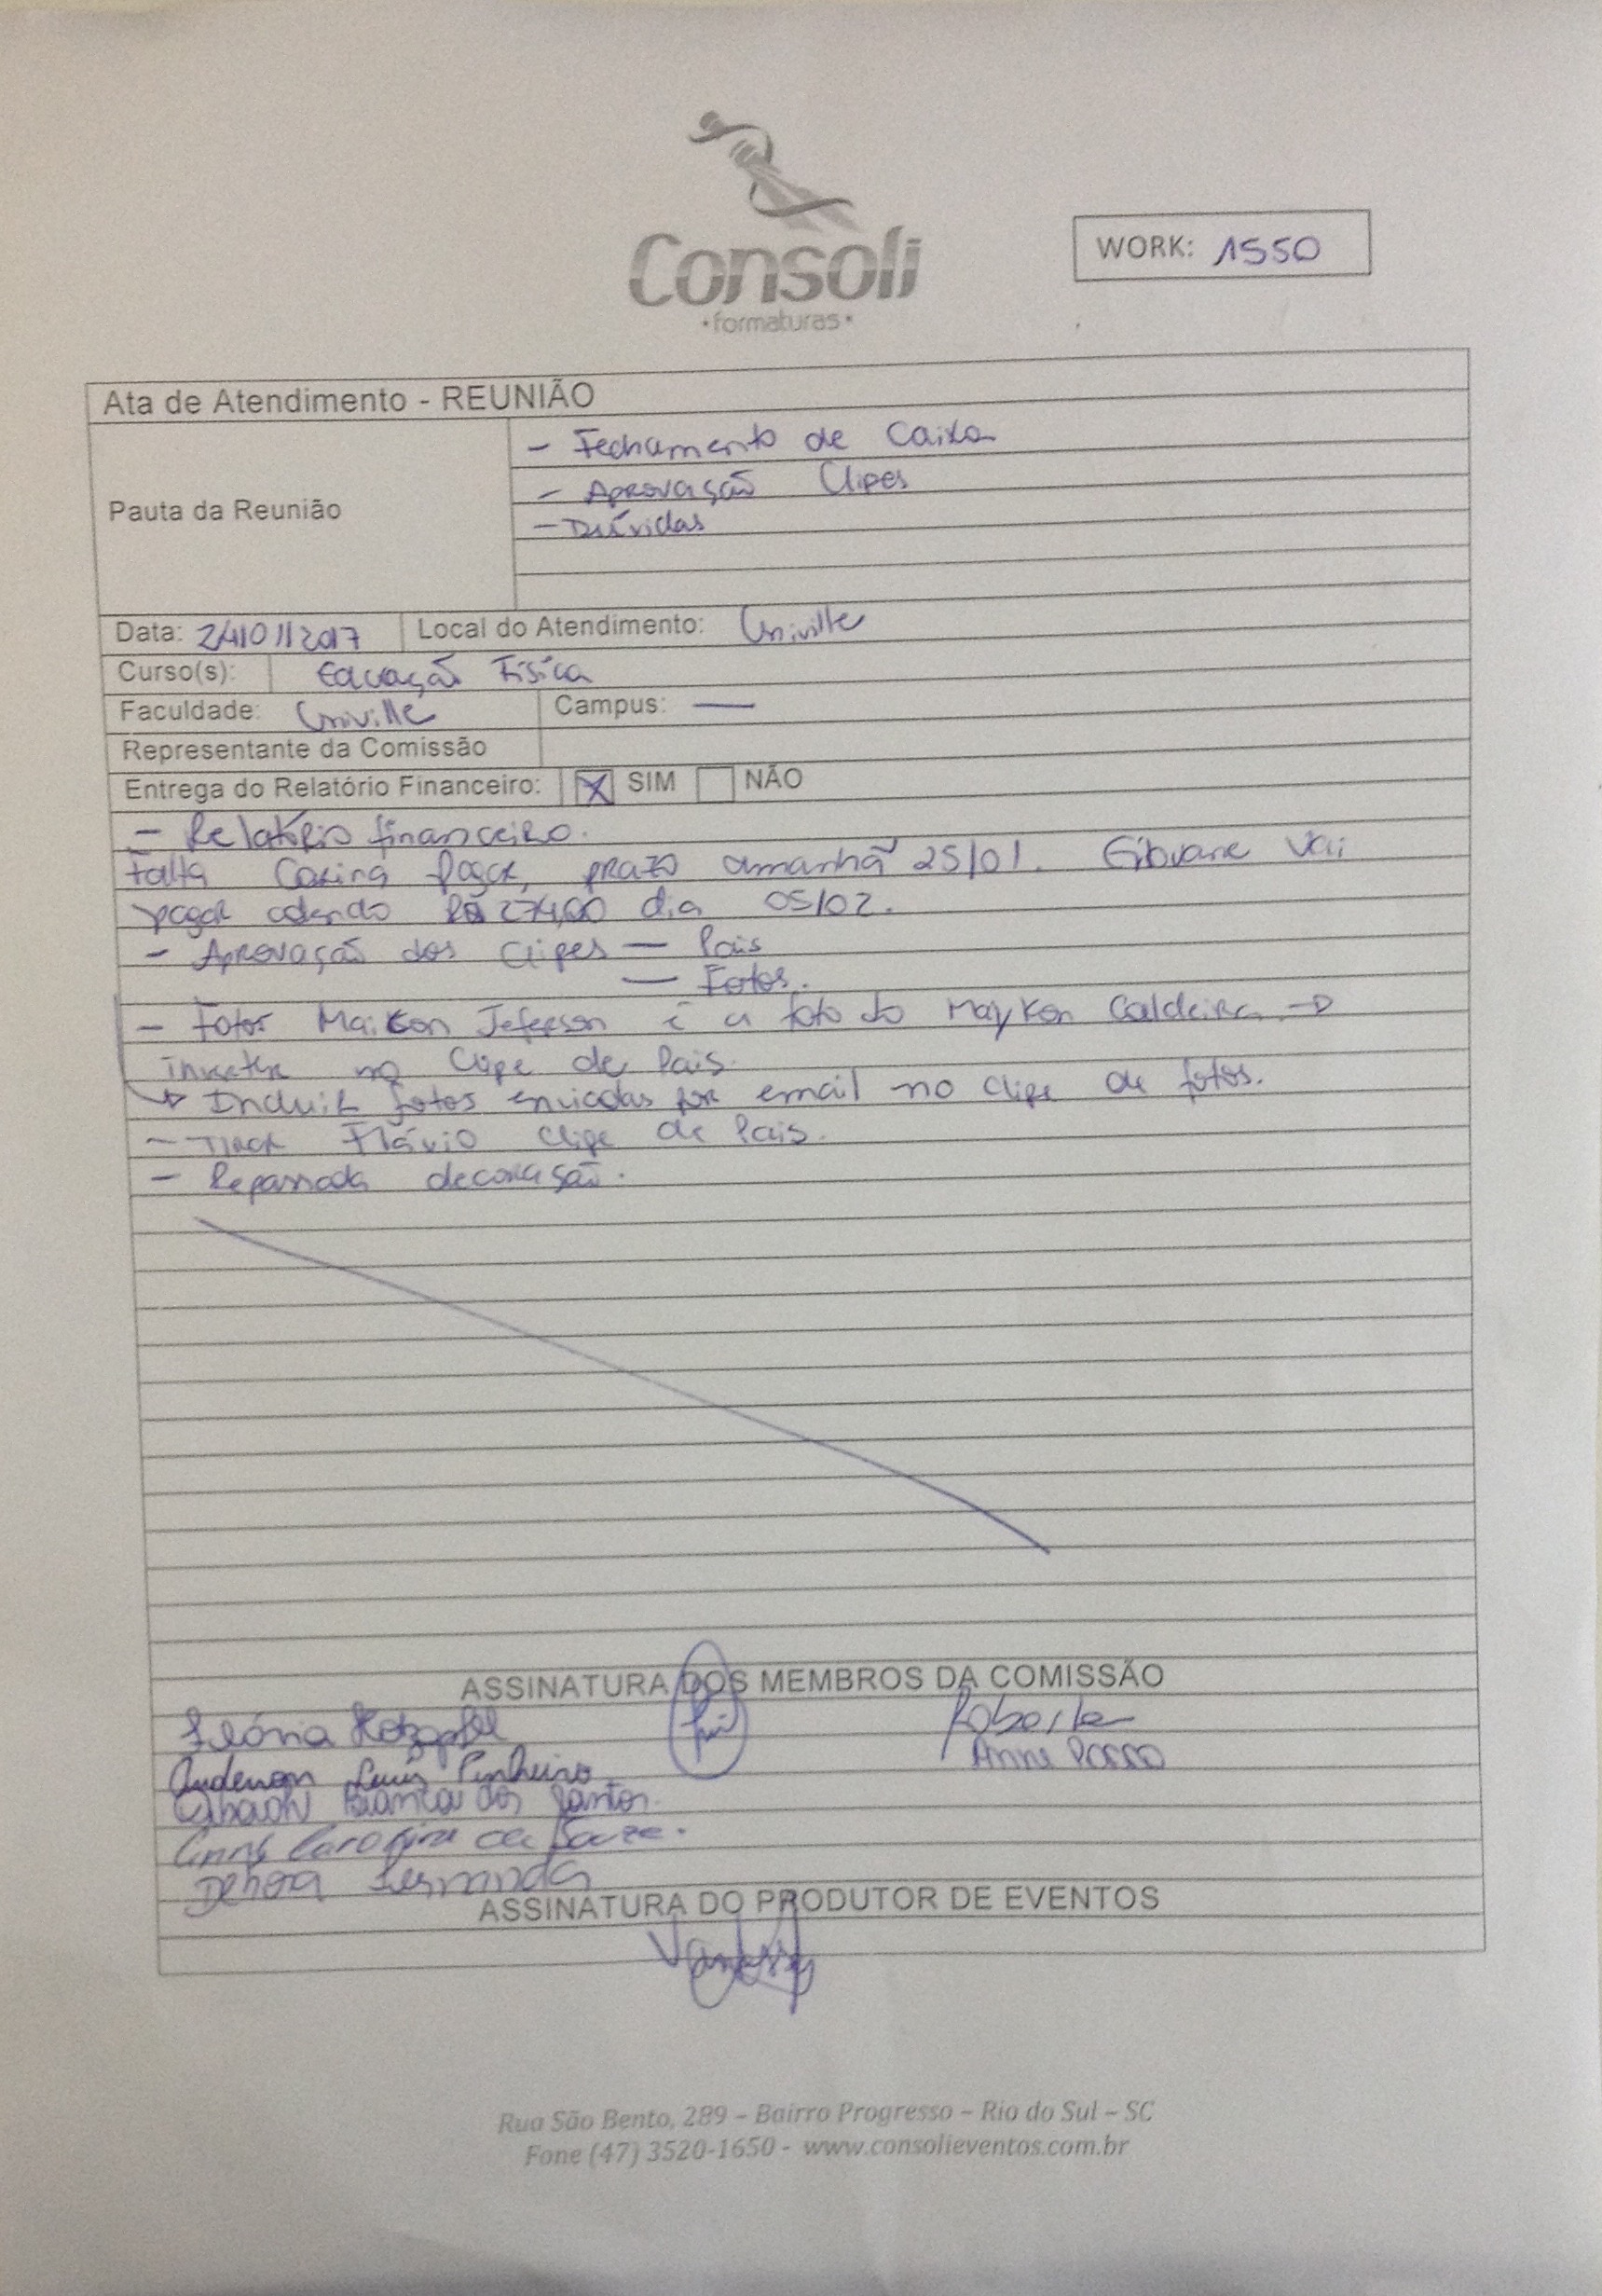 Consoli
•formaturas•
WORK: 1550
Ata de Atendimento - REUNIÃO
Pauta da Reunião
- Fechamento de Caixa
- Aprovação Clipes
- Dúvidas
Data: 24/01/2017 Local do Atendimento: Univille
Curso(s): Educação Física
Faculdade: Univille Campus: —
Representante da Comissão
Entrega do Relatório Financeiro: X SIM NÃO
- Relatório financeiro.
Falta Carina Pagar, prazo amanhã 25/01. Giovane vai
pagar R$ 274,00 dia 05/02.
- Aprovação dos Clipes — Pais
— Fotos.
- Fotos Maikon Jeferson é a foto do Maykon Caldeira →
inverter no Clipe de Pais.
→ Incluir fotos enviadas por email no clipe de fotos.
- Tirar Flávio clipe de Pais.
- Repassada decoração.
ASSINATURA DOS MEMBROS DA COMISSÃO
Roberta
Anne
Anderson Luis Pinheiro
Bianca dos Santos.
Carolina de Souza.
Debora Fernanda
ASSINATURA DO PRODUTOR DE EVENTOS
Rua São Bento, 289 – Bairro Progresso – Rio do Sul – SC
Fone (47) 3520-1650 - www.consolieventos.com.br